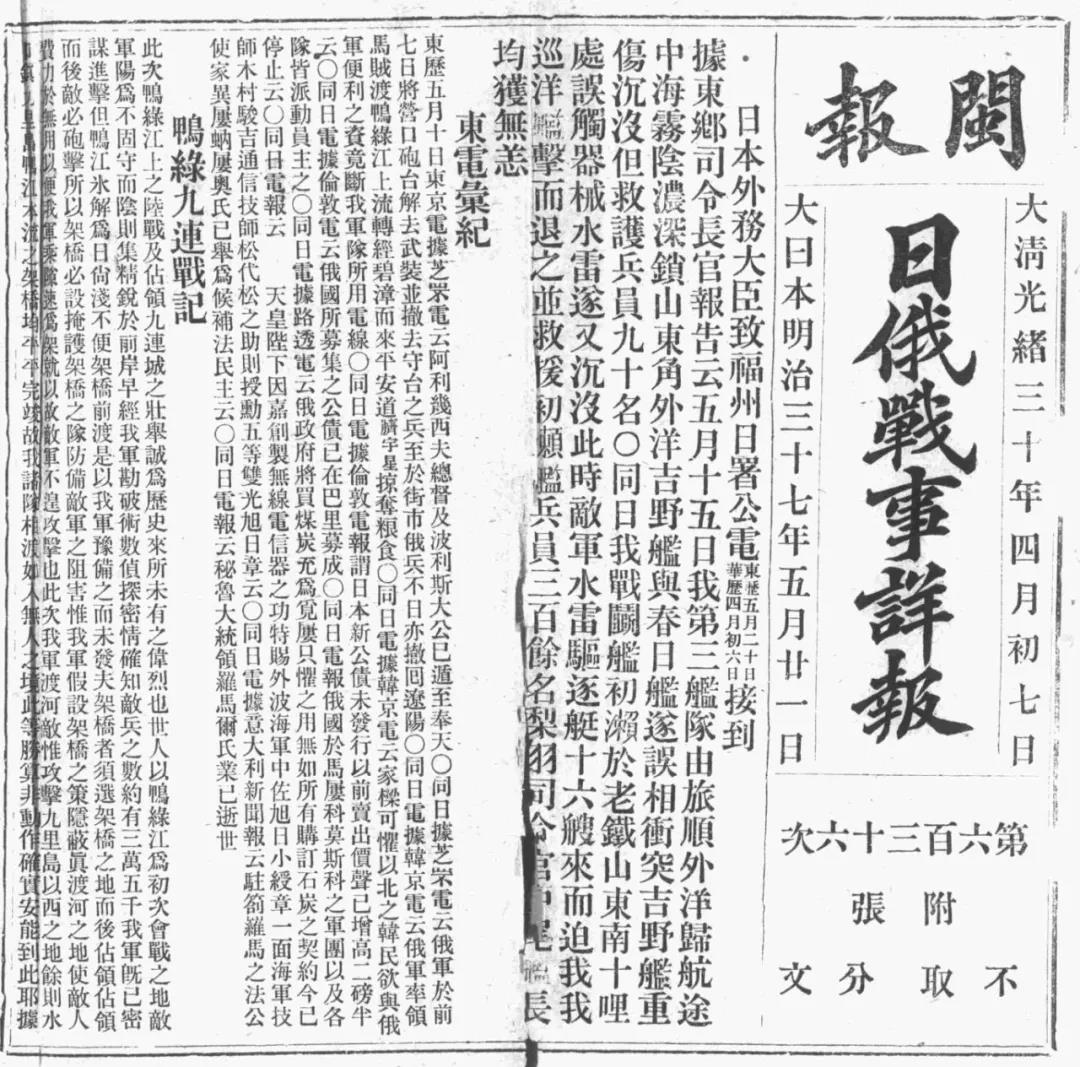 閩報
大淸光緒三十年四月初七日
日俄戰事詳報
大日本明治三十七年五月廿一日
第六百三十六次
附張
不取分文
日本外務大臣致福州日署公電東歷五月二十日華歷四月初六日接到
據東鄉司令長官報告云五月十五日我第三艦隊由旅順外洋歸航途
中海霧陰濃深鎖山東角外洋吉野艦與春日艦遂誤相衝突吉野艦重
傷沉沒但救護兵員九十名〇同日我戰鬬艦初瀨於老鐵山東南十哩
處誤觸器械水雷遂又沉沒此時敵軍水雷驅逐艇十六艘來而迫我我
巡洋艦擊而退之並救援初瀨艦兵員三百餘名梨羽司令官中尾艦長
均獲無恙
東電彙紀
東歷五月十日東京電據芝罘電云阿利幾西夫總督及波利斯大公已遁至奉天〇同日據芝罘電云俄軍於前
七日將營口砲台解去武裝並撤去守台之兵至於街市俄兵不日亦撤囘遼陽〇同日電據韓京電云俄軍率領
馬賊渡鴨綠江上流轉經碧漳而來平安道臍字星掠奪粮食〇同日電據韓京電云家樑可懼以北之韓民欲與俄
軍便利之資竟斷我軍隊所用電線〇同日電據倫敦電報謂日本新公債未發行以前賣出價聲已增高二磅半
云〇同日電據倫敦電云俄國所募集之公債已在巴里募成〇同日電報俄國於馬屢科莫斯科之軍團以及各
隊皆派動員主之〇同日電據路透電云俄政府將買煤炭充爲寬屢只懼之用無如所有購訂石炭之契約今已
停止云〇同日電報云　天皇陛下因嘉創製無線電信器之功特賜外波海軍中佐旭日小綬章一面海軍技
師木村駿吉通信技師松代松之助則授勳五等雙光旭日章云〇同日電據意大利新聞報云駐箚羅馬之法公
使家異屢蚋屢奧氏已舉爲候補法民主云〇同日電報云秘魯大統領羅馬爾氏業已逝世
鴨綠九連戰記
此次鴨綠江上之陸戰及佔領九連城之壯舉誠爲歷史來所未有之偉烈也世人以鴨綠江爲初次會戰之地敵
軍陽爲不固守而陰則集精銳於前岸早經我軍勘破術數偵探密情確知敵兵之數約有三萬五千我軍旣已密
謀進擊但鴨江氷解爲日尙淺不便架橋前渡是以我軍豫備之而未發夫架橋者須選架橋之地而後佔領佔領
而後敵必砲擊所以架橋必設掩護架橋之隊防備敵軍之阻害惟我軍假設架橋之策隱蔽眞渡河之地使敵人
費力於無用以便我軍乘隙速爲架就以故敵軍不遑攻擊也此次我軍渡河敵惟攻擊九里島以西之地餘則水
九里島鴨江本流之架橋均平平完竣故我諸隊相渡如入無人之境此等勝算非動作確實安能到此耶據